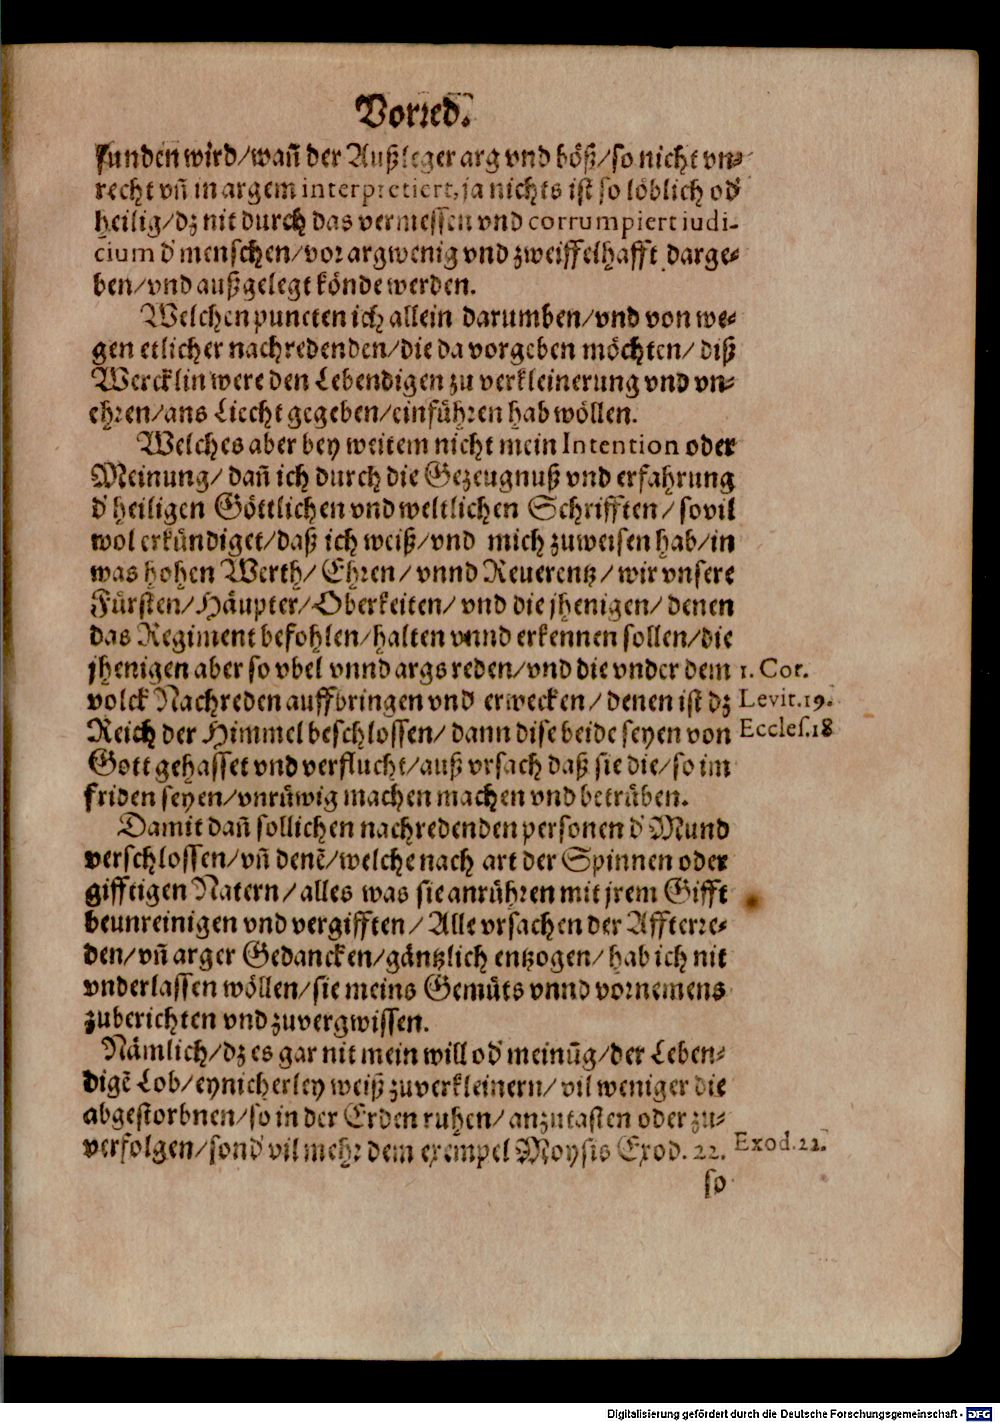 Vorred.
funden wird/wañ der Außleger arg vnd böß/so nicht vn-
recht vñ in argem interpretiert, ja nichts ist so löblich od'
heilig/dz nit durch das vermessen vnd corrumpiert iudi-
cium d' menschen/vor argwenig vnd zweiffelhafft darge-
ben/vnd außgelegt könde werden.
Welchen puncten ich allein darumben/vnd von we-
gen etlicher nachredenden/die da vorgeben möchten/ diß
Wercklin were den Lebendigen zu verkleinerung vnd vn-
ehren/ans Liecht gegeben/einführen hab wöllen.
Welches aber bey weitem nicht mein Intention oder
Meinung/ dañ ich durch die Gezeugnuß vnd erfahrung
d' heiligen Göttlichen vnd weltlichen Schrifften/ sovil
wol erkündiget/daß ich weiß/vnd mich zuweisen hab/in
was hohen Werth/ Ehren/ vnnd Reuerentz/ wir vnsere
Fürsten/Häupter/Oberkeiten/ vnd die jhenigen/ denen
das Regiment befohlen/halten vnnd erkennen sollen/die
jhenigen aber so vbel vnnd args reden/vnd die vnder dem 1. Cor.
volck Nachreden auffbringen vnd erwecken/ denen ist dz Levit.19.
Reich der Himmel beschlossen/ dann dise beide seyen von Eccles.18
Gott gehasset vnd verflucht/auß vrsach daß sie die/so im
friden seyen/vnrüwig machen machen vnd betrüben.
Damit dañ sollichen nachredenden personen d' Mund
verschlossen/vñ denẽ/welche nach art der Spinnen oder
gifftigen Natern/ alles was sie anrühren mit jrem Gifft
beunreinigen vnd vergifften/ Alle vrsachen der Affterre-
den/vñ arger Gedancken/gäntzlich entzogen/ hab ich nit
vnderlassen wöllen/sie meins Gemüts vnnd vornemens
zuberichten vnd zuvergwissen.
Nämlich/dz es gar nit mein will od' meinũg/der Leben-
digẽ Lob/eynicherley weiß zuverkleinern/ vil weniger die
abgestorbnen/so in der Erden ruhen/ anzutasten oder zu-
verfolgen/sond' vil mehr dem exempel Moysis Exod. 22. Exod.22.
so
Digitalisierung gefördert durch die Deutsche Forschungsgemeinschaft - DFG